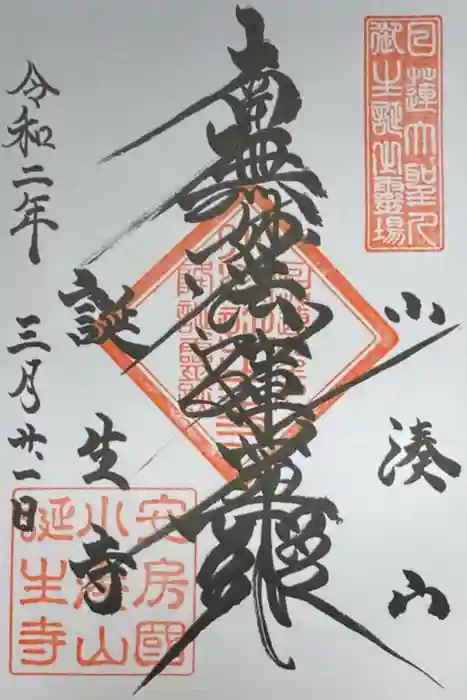 日蓮大聖人
御生誕之霊場
小湊山
南無妙法蓮華経
誕生寺
令和二年 三月廿一日
安房國
小湊山
誕生寺